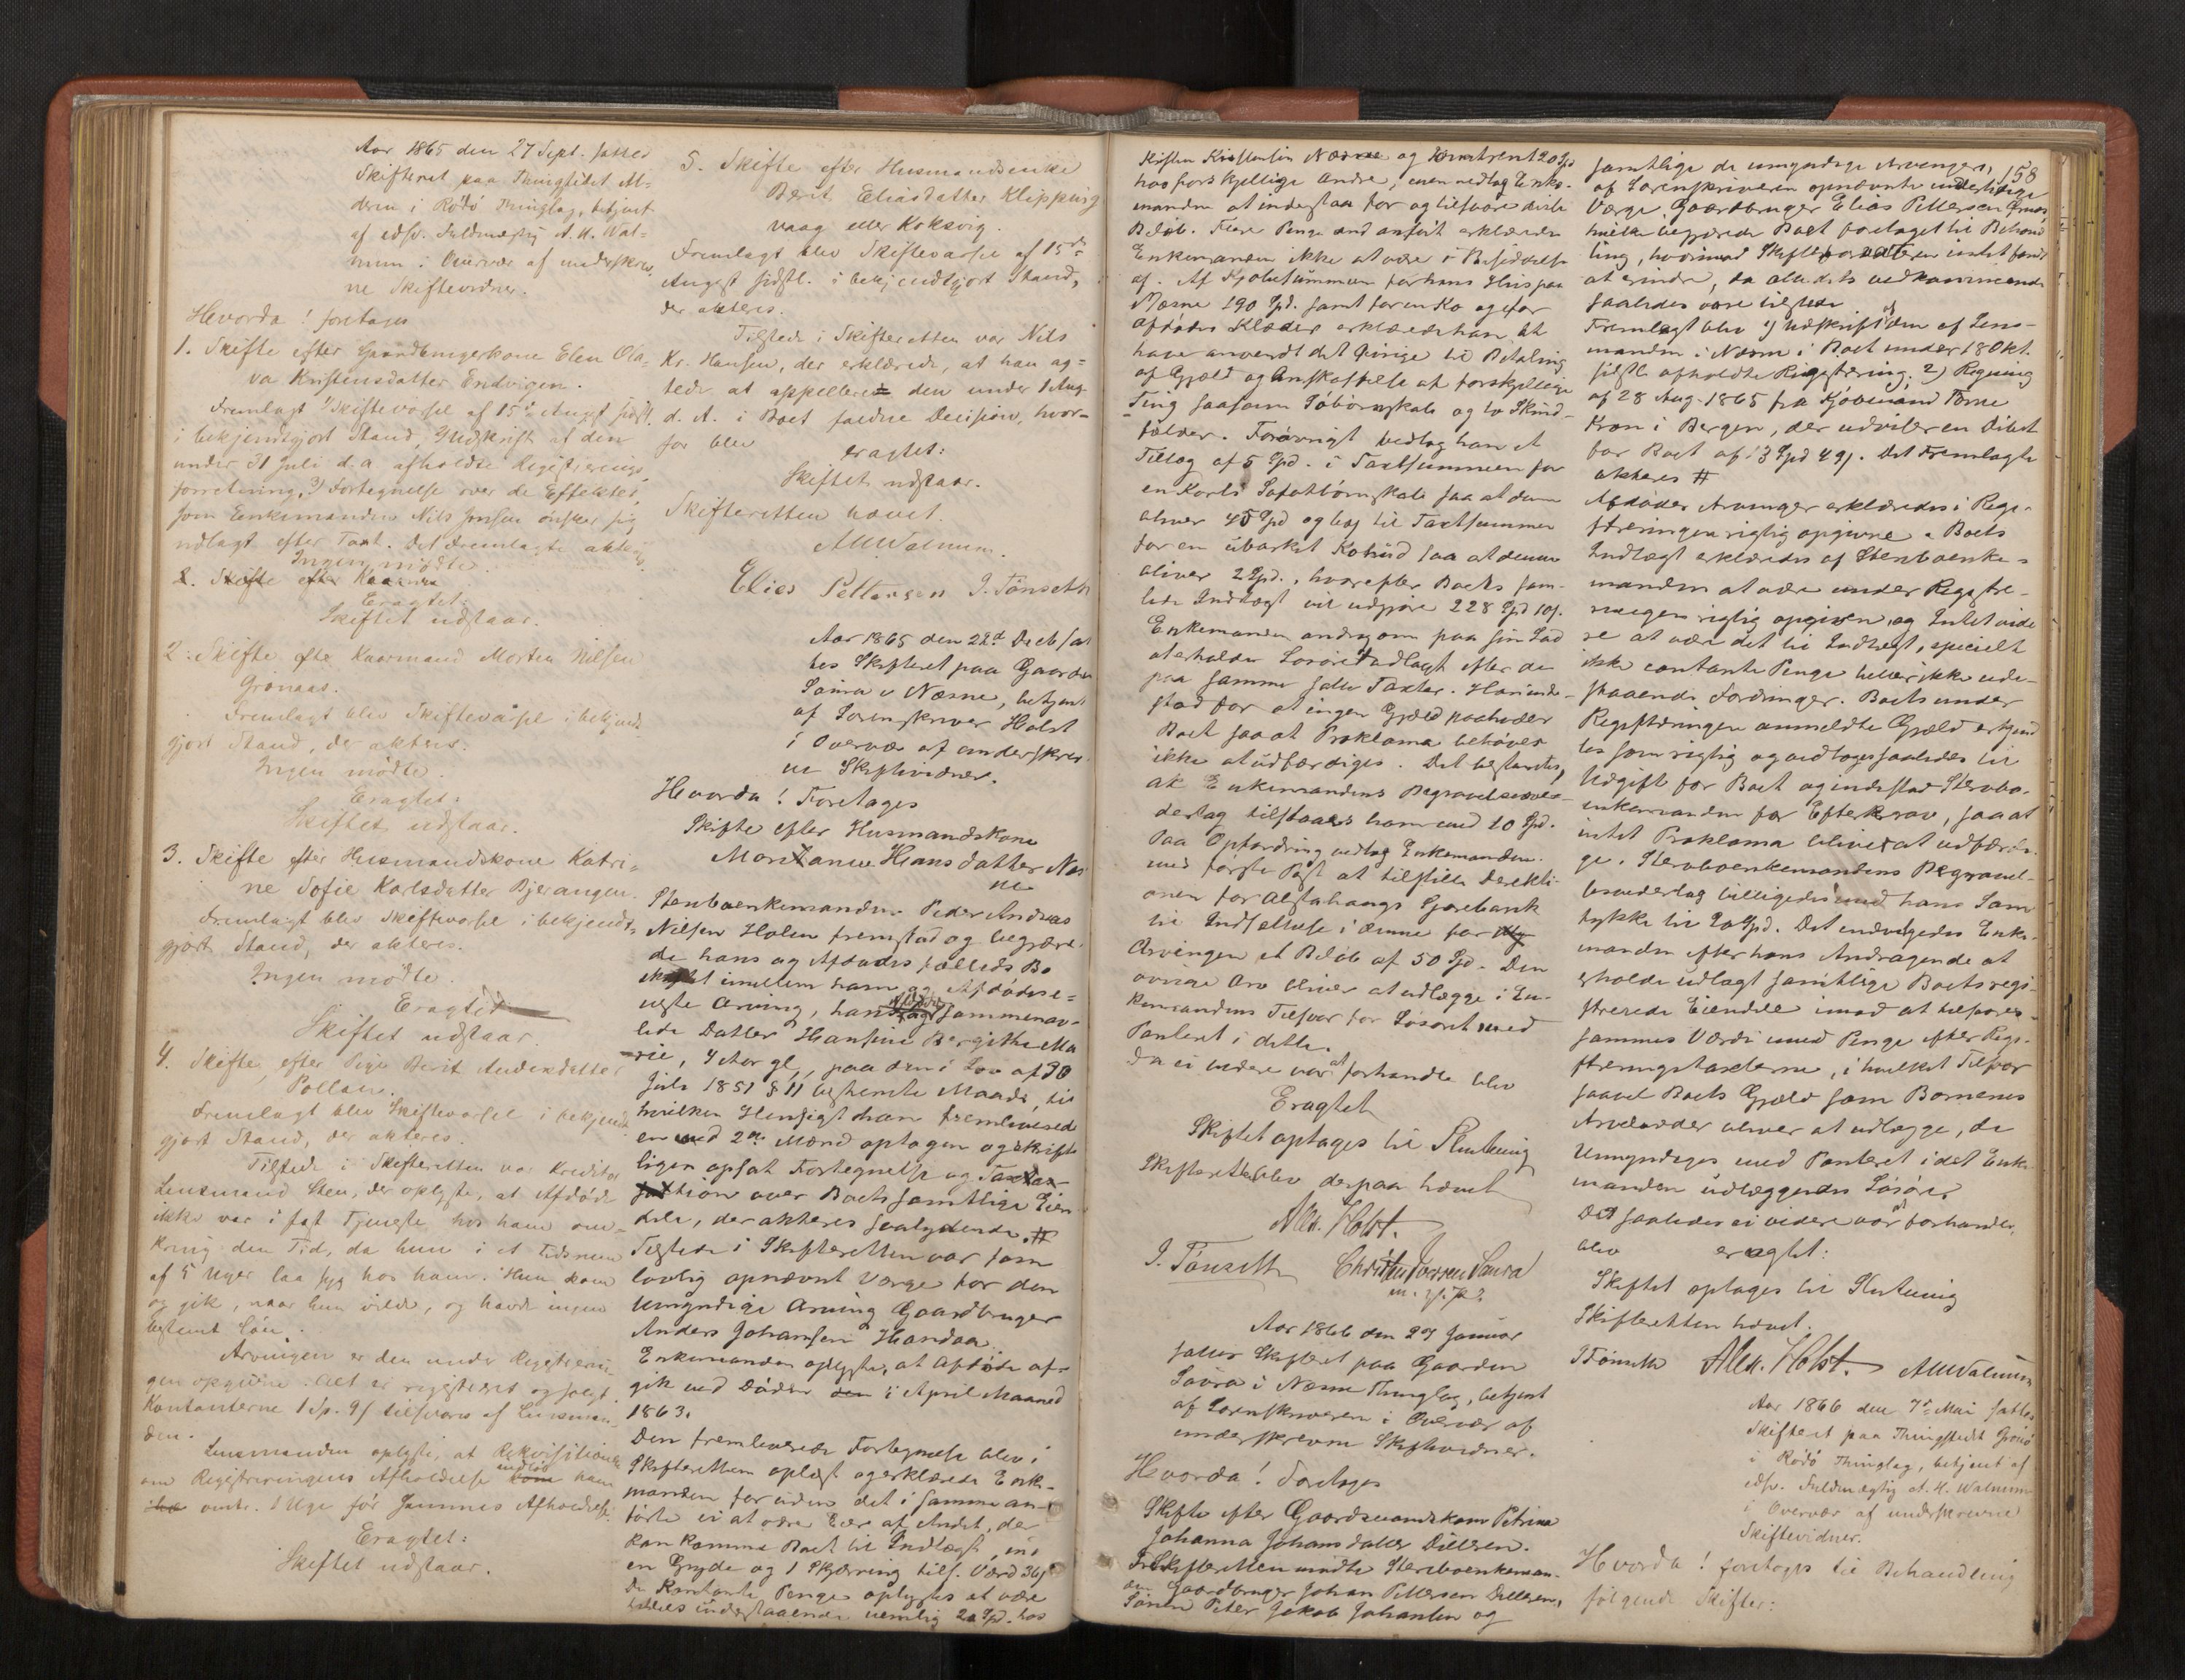 Aar 1865 den 27 Sept. sattes
Skifteret paa Thingstedet Al-
deren i Rödö Thinglag, betjent
af edsv. Fuldmægtig A. M. Wal-
num i Overvær af underskrev-
ne Skiftevidner.
Hvorda! foretages
1. Skifte efter Gaardbrugerkone Elen Ola-
va Kristensdatter Endvigen.
Fremlagt 1) Skiftevarsel af 15de Augst sidstl.
i bekjendtgjort Stand, 2) Udskrift af den
under 31 Juli d. a. afholdte Registrerings
forretning, 3) Fortegnelse over de Effekter,
som Enkemanden Nils Jensen ønsker sig
udlagt efter Taxt. Det Fremlagte akteres.
Ingen mødte.
2. Skifte efter
Eragtet:
Skiftet udstaar.
2. Skifte efter Kaarmand Morten Nilsen
Grönaas.
Fremlagt blev Skiftevarsel i bekjendt-
gjort Stand, der akteres.
Ingen mødte.
Eragtet:
Skiftet udstaar.
3. Skifte efter Husmandskone Katri-
ne Sofie Karlsdatter Bjerangen.
Fremlagt blev Skiftevarsel i bekjendt-
gjort Stand, der akteres.
Ingen mødte.
Eragtet
Skiftet udstaar.
4. Skifte efter Pige Berit Andersdatter
Pollan.
Fremlagt blev Skiftevarsel i bekjendt
gjort Stand, der akteres.
Tilstede i Skifteretten var Kreditor
Lensmand Steen, der oplyste, at Afdøde
ikke var i fast Tjeneste hos ham om-
kring den Tid, da hun i et Tidsrum
af 5 Uger laa syg hos ham. Hun kom
og gik, naar hun vilde, og havde ingen
bestemt Løn.
Arvingen er den under Registrerin-
gen opgivne. Alt er registreret og solgt.
Kontanterne 1 Sp. 9 s tilsvares af Lensman-
den.
Lensmanden oplyste, at Rekvisitionen
om Registreringens Afholdelse indløb
omtr. 1 Uge før Sammes Afholdelse.
Eragtet:
Skiftet udstaar.
5. Skifte efter Husmandsenke
Berit Eliasdatter Klipping
vaag eller Koksvig.
Fremlagt blev Skiftevarsel af 15de
August sidstl. i bekjendtgjort Stand,
der akteres.
Tilstede i Skifteretten var Nils
Kr. Hansen, der erklærede, at han ag-
tede at appellere den under 1 Aug
d. A. i Boet faldne Decision, hvor-
for blev
eragtet:
Skiftet udstaar.
Skifteretten hævet.
AMWalnum.
Elias Pettersen J. Tönseth
Aar 1865 den 22d Decb sat
tes Skifteret paa Gaarden
Saura i Næsne, betjent
af Sorenskriver Holst
i Overvær af underskrev-
ne Skiftevidner.
Hvorda! Foretages
Skifte efter Husmandskone
Montanne Hansdatter Næs
ne
Stervboenkemanden Peder Andreas
Nilsen Holen fremstod og begjære-
de hans og Afdødes fælleds Bo
skiftet imellem ham og Afdødes e-
neste Arving, hans og Afdødes sammenav-
lede Datter Hansine Bergithe Ma
rie, 4 Aar gl., paa den i Lov af 30
Juli 1851 § 11 bestemte Maade, til
hvilken Hensigt han fremleverede
en med 2de Mænd optagen og skrift-
ligen opsat Fortegnelse og Taxa-
tion over Boets samtlige Eien
dele, der akteres saalydende. #
Tilstede i Skifteretten var som
lovlig opnævnt Værge for den
umyndige Arving Gaardbruger
Anders Johansen Handaa.
Enkemanden oplyste, at Afdøde af-
gik ved Døden i April Maaned
1863.
Den fremleverede Fortegnelse blev i
Skifteretten oplæst og erklærede Enke-
manden foruden det i samme an-
førte ei at være Eier af Andet, der
kan komme Boet til Indtægt, end
en Gryde og 1 Skjærring tils. Værd 36 s
De Kontante Penge oplystes at være
taldes indestaaende nemlig 20 Spd. hos
Kristen Kristensen Næsne og Kontrent 20 Spd
hos forskjellige Andre, men vedtog Enke-
manden at indestaa for og tilsvare disse
Beløb. Flere Penge end anført erklærede
Enkemanden ikke at være i Besiddelse
af. Af Kjøbesummen for hans Huus paa
Næsne 190 Spd. samt for en Ko og for
Afdødes Klæder erklærede han at
have anvendt det Øvrige til Betaling
af Gjæld og Anskaffelse af forskjellige
Ting saasom Söbörnskab og to Skind-
fælder. Forøvrigt vedtog han et
Tillæg af 5 Spd. i Taxtsummen for
en Karls Sofatbörnskab saa at denne
bliver 45 Spd og til Taxtsummen
for en ubarket Kohud saa at denne
bliver 2 Spd., hvorefter Boets sam-
lede Indtægt vil udgjøre 228 Spd 10 s.
Enkemanden androg om paa sin Lod
at erholde Løsøret udlagt efter de
paa samme satte Taxter. Han inde-
stod for at ingen Gjæld paahviler
Boet saa at Proklama behøves
ikke at udfærdiges. Det bestemtes,
at Enkemandens Begravelsesve-
derlag tilstaaes ham med 10 Spd.
Paa Opfordring vedtog Enkemanden
med første Post at tilstille Direkti-
onen for Alstahaugs Sparebank
til Indsættelse i denne for
Arvingen et Beløb af 50 Spd. Den
øvrige Arv bliver at udlægge i En-
kemandens Tilsvar for Løsøret med
Panteret i dette.
Da ei videre var at forhandle blev
Eragtet
Skiftet optages til Slutning
Skifteretten blev derpaa hævet
Alex. Holst.
J. Tönseth Christen Iversen Saura
m. p. P.
Aar 1866 den 29 Januar
sattes Skifteret paa Gaarden
Saura i Næsne Thinglag, betjent
af Sorenskriveren i Overvær af
underskrevne Skiftevidner.
Hvorda! Foretages
Skifte efter Gaardmandskone Petrine
Johanna Johansdatter Dillesen.
I Skifteretten mødte Stervboenkeman-
den Gaardbruger Johan Pettersen Dillesen,
Sønnen Peter Jakob Johansen og
158
samtlige de umyndige Arvingers,
af Sorenskriveren opnævnte midlertidige
Værge, Gaardbruger Elias Pettersen
hvilke begjærede Boet foretaget til Behand
ling, hvorimod Skifteforvalteren intet fandt
at erindre, da alle dets vedkommende
saaledes vare tilstede
Fremlagt blev 1) Udskrift af den af Lens-
manden i Næsne i Boet under 18 Okt.
sidstl. afholdte Registrering. 2) Regning
af 28 Aug. 1865 fra Kjøbmand Tønne
Kron i Bergen, der udviser en Debet
for Boet af 13 Spd 49 s. Det Fremlagte
akteres #
Afdødes Arvinger erklæredes i Regi-
streringen rigtig opgivne. Boets
Indtægt erklæredes af Stervboenke-
manden at være under Registre-
ringen rigtig opgiven, og Intet vide-
re at være det til Indtægt, specielt
ikke contante Penge heller ikke ude-
staaende Fordringer. Boets under
Registreringen anmeldte Gjæld erkjend
tes som rigtig og vedtoges saaledes til
Udgift for Boet og indestod Stervbo-
enkemanden for Efterkrav, saa at
intet Proklama bliver at udfærdi-
ge. Stervboenkemandens Begravel-
sesvederlag billigedes med hans Sam
tykke til 20 Spd. Det indvilgedes Enke-
manden efter hans Andragende at
erholde udlagt samtlige Boets regi-
strerede Eiendele imod at tilsvare
sammes Værdi med Penge efter Regi-
streringstaxterne, i hvilket Tilsvar
saavel Boets Gjæld som Børnenes
Arvelodder bliver at udlægge, de
Umyndiges med Panteret i det Enke-
manden udlæggendes Løsøre.
Det saaledes ei videre var at forhandle,
blev eragtet:
Skiftet optages til Slutning
Skifteretten hævet.
J Tönseth Alex. Holst. AMWalnum
Aar 1866 den 7de Mai sattes
Skifteret paa Thingstedet Grönö
i Rödö Thinglag, betjent af
edsv. Fuldmægtig A. M. Walnum
i Overvær af underskrevne
Skiftevidner.
Hvorda! foretoges til Behandling
følgende Skifter: